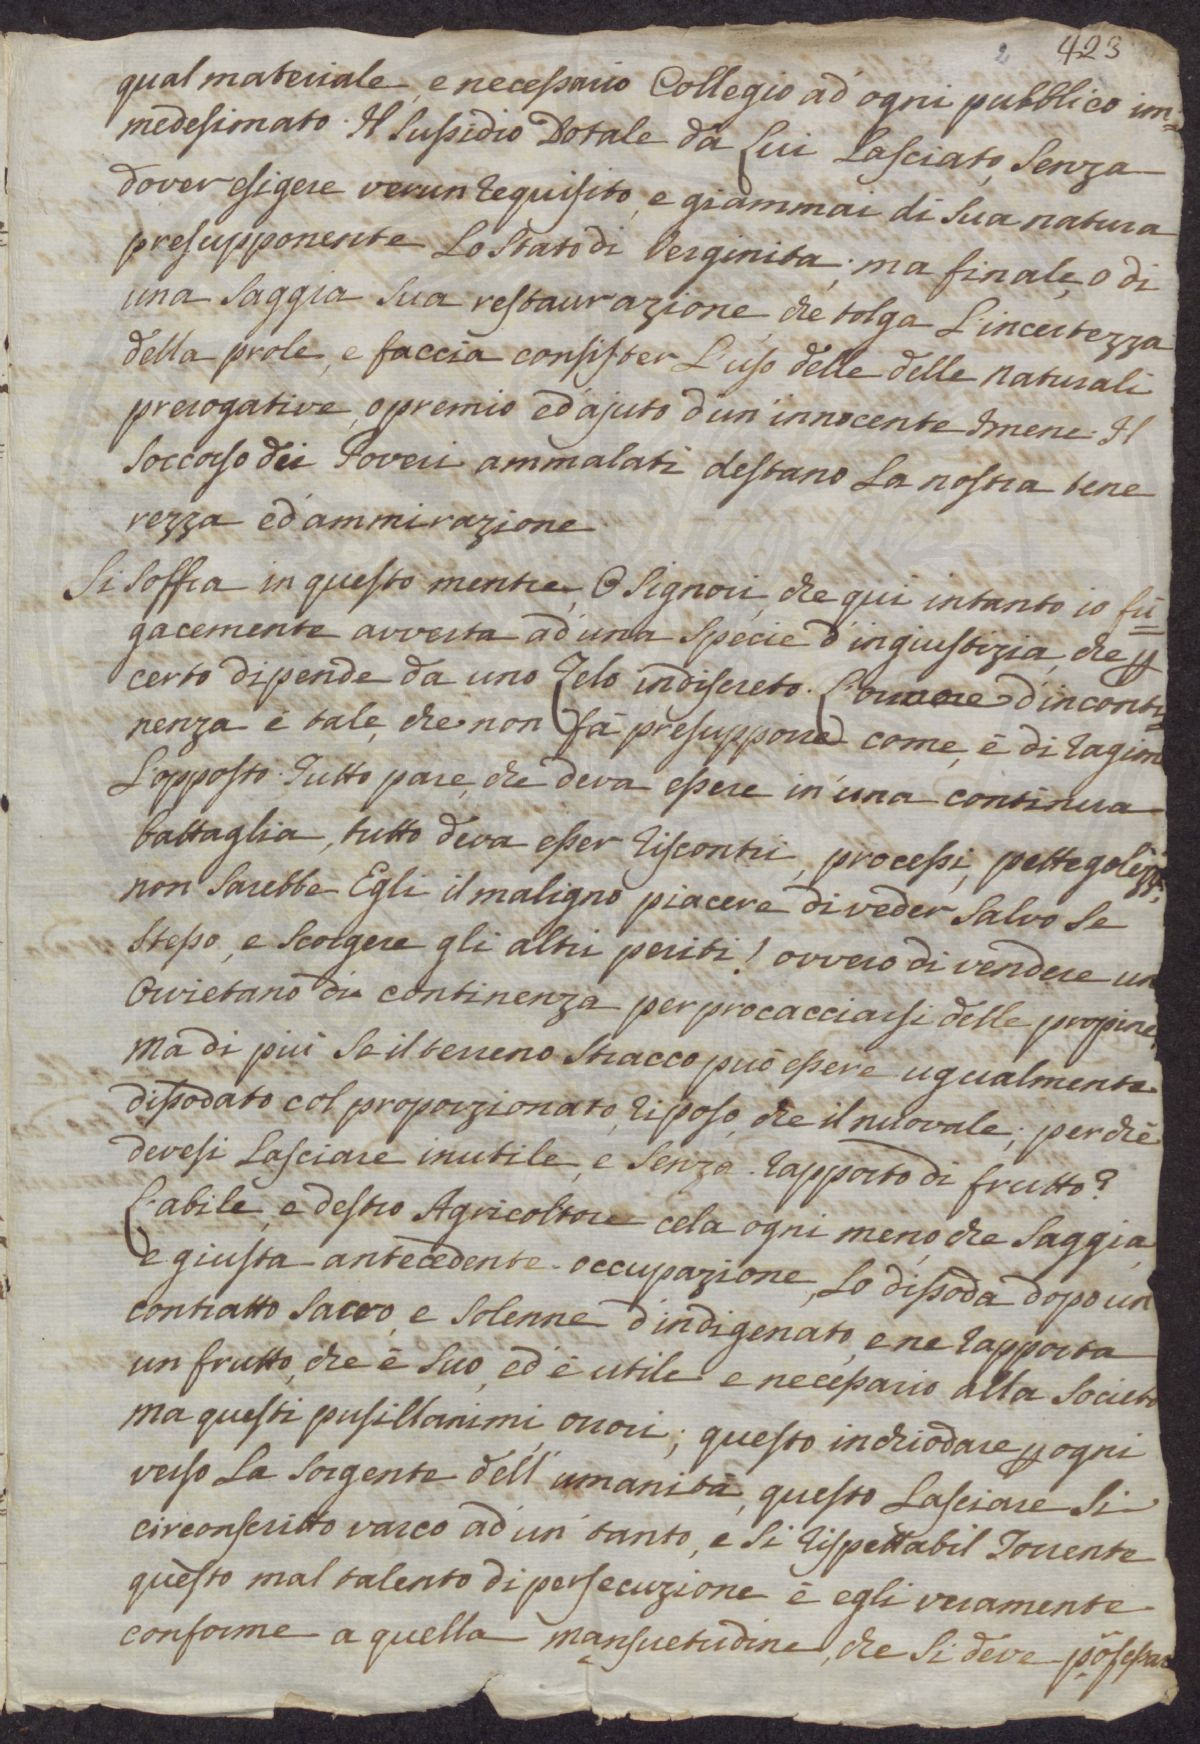 2 423
qual materiale, e necessario Collegio ad ogni pubblico im=
medesimato. Il Sussidio Dotale da Lui Lasciato, Senza
dover esigere verun requisito, e giammai di Sua natura
presupponente Lo Stato di Verginità; ma finale, o di
una Saggia Sua restaurazione, che tolga L'incertezza
della prole, e faccia consister L'uso delle delle naturali
prerogative, o premio ed ajuto d'un innocente Imene. Il
Soccorso dei Poveri ammalati destano La nostra tene
rezza ed ammirazione
Si Soffra in questo mentre, O Signori, che qui intanto io fu=
gacemente avverta ad una Specie d'ingiustizia, che p
certo dipende da uno Zelo indiscreto. L'onore d'inconti=
nenza è tale, che non La fà presupporre come, è di ragion
L'opposto. Tutto pare, che deva essere in una continua
battaglia, tutto deva esser riscontri, processi, pettegolezzi.
non Sarebbe Egli il maligno piacere di veder Salvo Se
Stesso, e Scorgere gli altri periti! ovvero di vendere un
Orvietano di continenza per procacciarsi delle propine,
Ma di più Se il terreno Stracco può essere ugualmente
dissodato col proporzionato riposo, che il nuovale; perchè
devesi Lasciare inutile, e Senza rapporto di frutto?
L'abile, e destro Agricoltore cela ogni meno, che Saggia,
e giusta antecedente occupazione, Lo dissoda dopo un
contratto Sacro, e Solenne d'indigenato, e ne rapporta
un frutto, che è Suo, ed è utile e necessario alla Società
Ma questi pusillanimi orrori; questo inchiodare p ogni
verso La Sorgente dell'umanità, questo Lasciare Si
circonscritto varco ad un tanto, e Si rispettabil Torrente
questo mal talento di persecuzione è egli veramente
conforme a quella mansuetudine, che Si deve professare